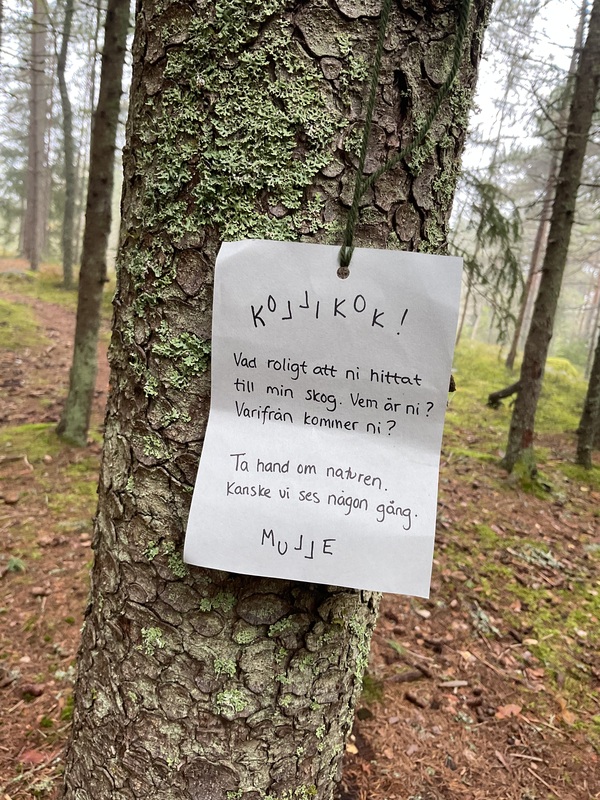 KOLLIKOK!
Vad roligt att ni hittat
till min skog. Vem är ni?
Varifrån kommer ni?
Ta hand om naturen.
Kanske vi ses någon gång.
MULLE